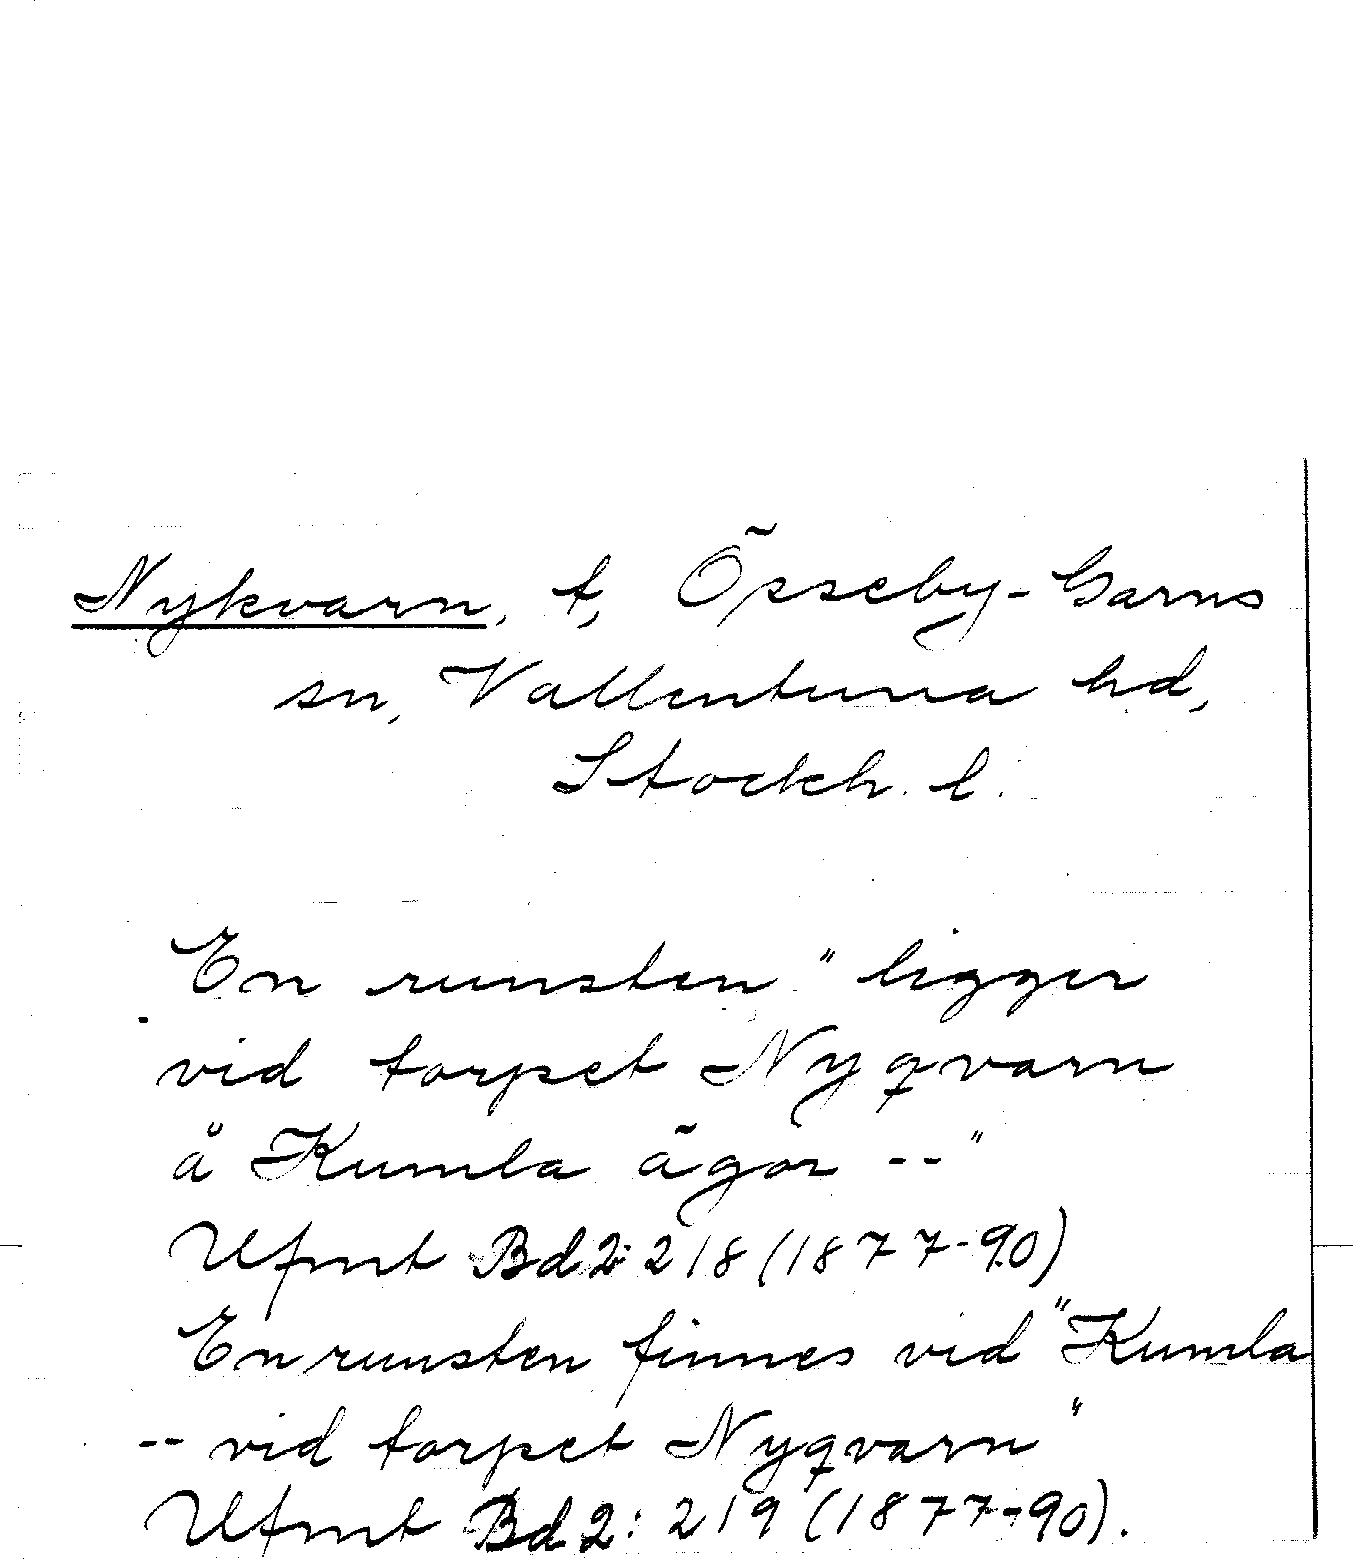 Nykvarn, t, Össeby-Garns
sn, Vallentuna hd,
Stockh. l.
En runsten "ligger
vid torpet Nyqvarn
å Kumla ägor --"
Ufmt Bd 2: 218 (1877-90)
En runsten finnes vid "Kumla
-- vid torpet Nyqvarn"
Ufmt Bd 2: 219 (1877-90).